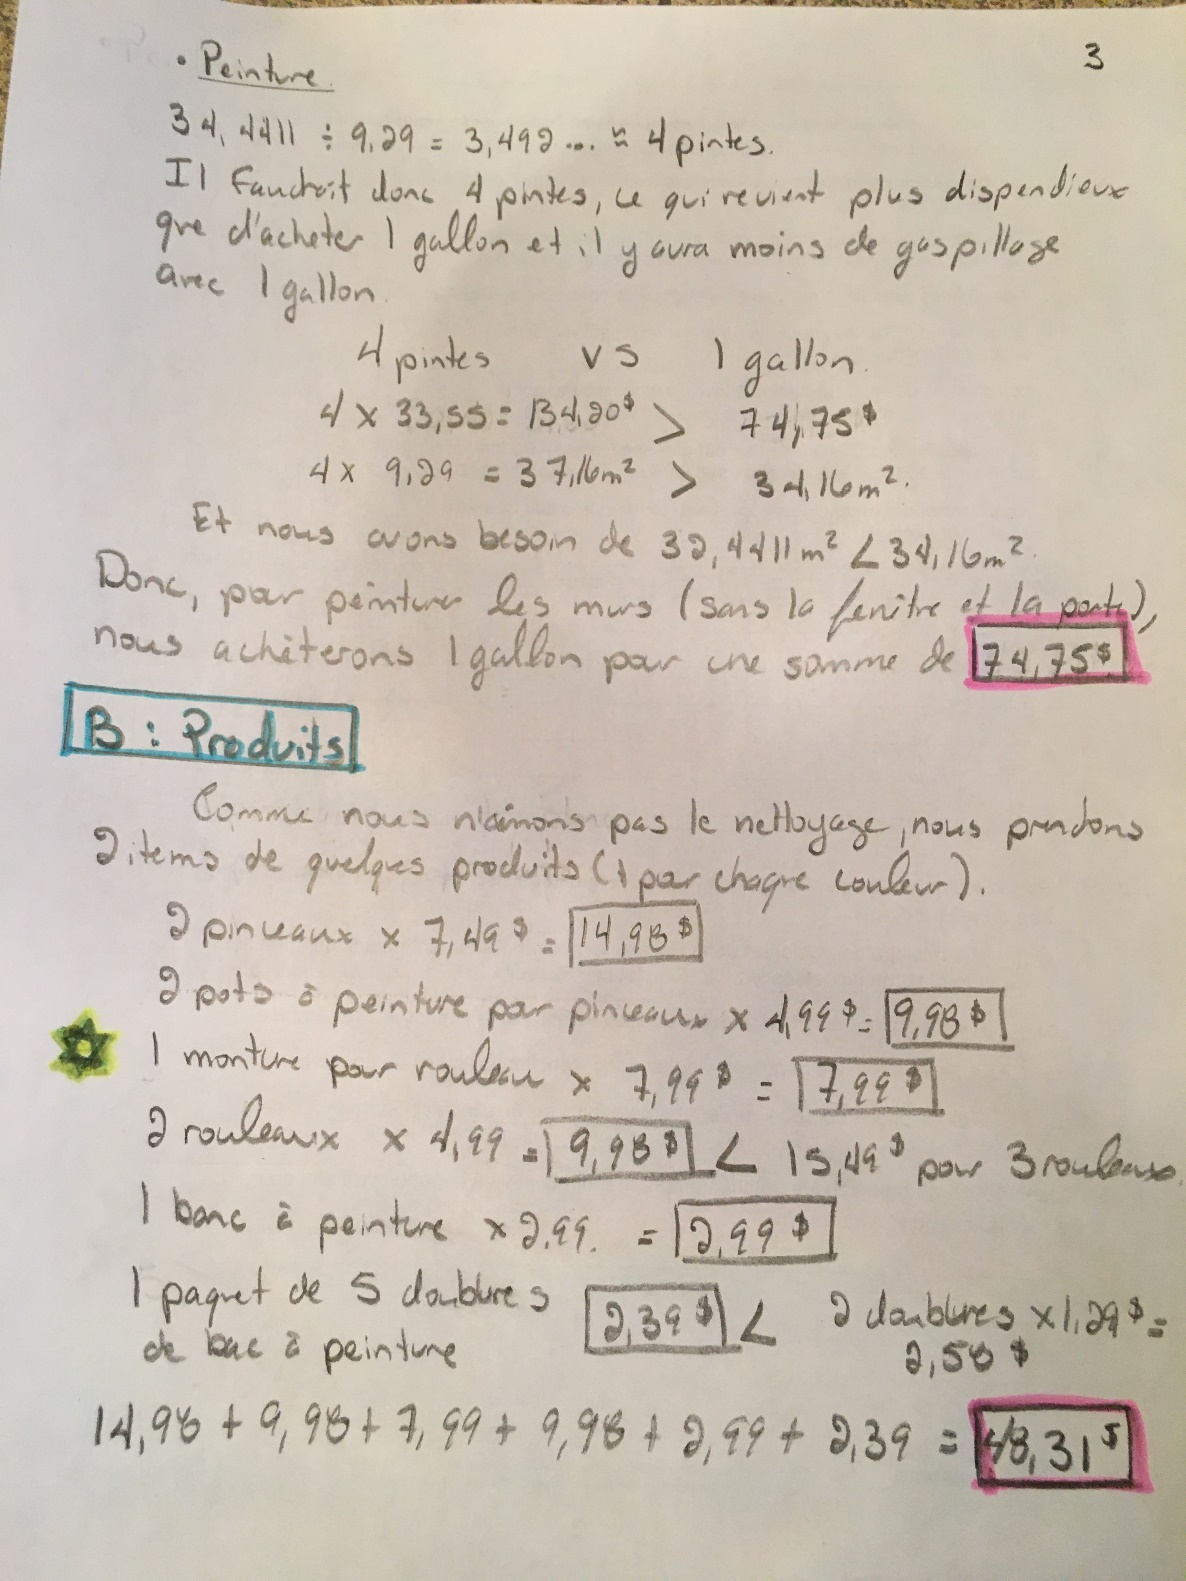 3
• Peinture.
34,4411 ÷ 9,29 = 3,492... ≈ 4 pintes.
Il faudrait donc 4 pintes, ce qui revient plus dispendieux
que d'acheter 1 gallon et il y aura moins de gaspillage
avec 1 gallon.
4 pintes vs 1 gallon.
4 x 33,55 = 134,20$ > 74,75$
4 x 9,29 = 37,16m² > 34,16m².
Et nous avons besoin de 32,4411m² < 34,16m².
Donc, pour peinturer les murs (sans la fenêtre et la porte),
nous achèterons 1 gallon pour une somme de 74,75$
B : Produits
Comme nous n'aimons pas le nettoyage, nous prendons
2 items de quelques produits (1 par chaque couleur).
2 pinceaux x 7,49$ = 14,98$
2 pots à peinture pour pinceaux x 4,99$ = 9,98$
1 monture pour rouleau x 7,99$ = 7,99$
2 rouleaux x 4,99 = 9,98$ < 15,49$ pour 3 rouleaux.
1 banc à peinture x 2,99. = 2,99$
1 paquet de 5 doublures 2,39$ < 2 doublures x 1,29$ =
de bac à peinture 2,58$
14,98 + 9,98 + 7,99 + 9,98 + 2,99 + 2,39 = 48,31$